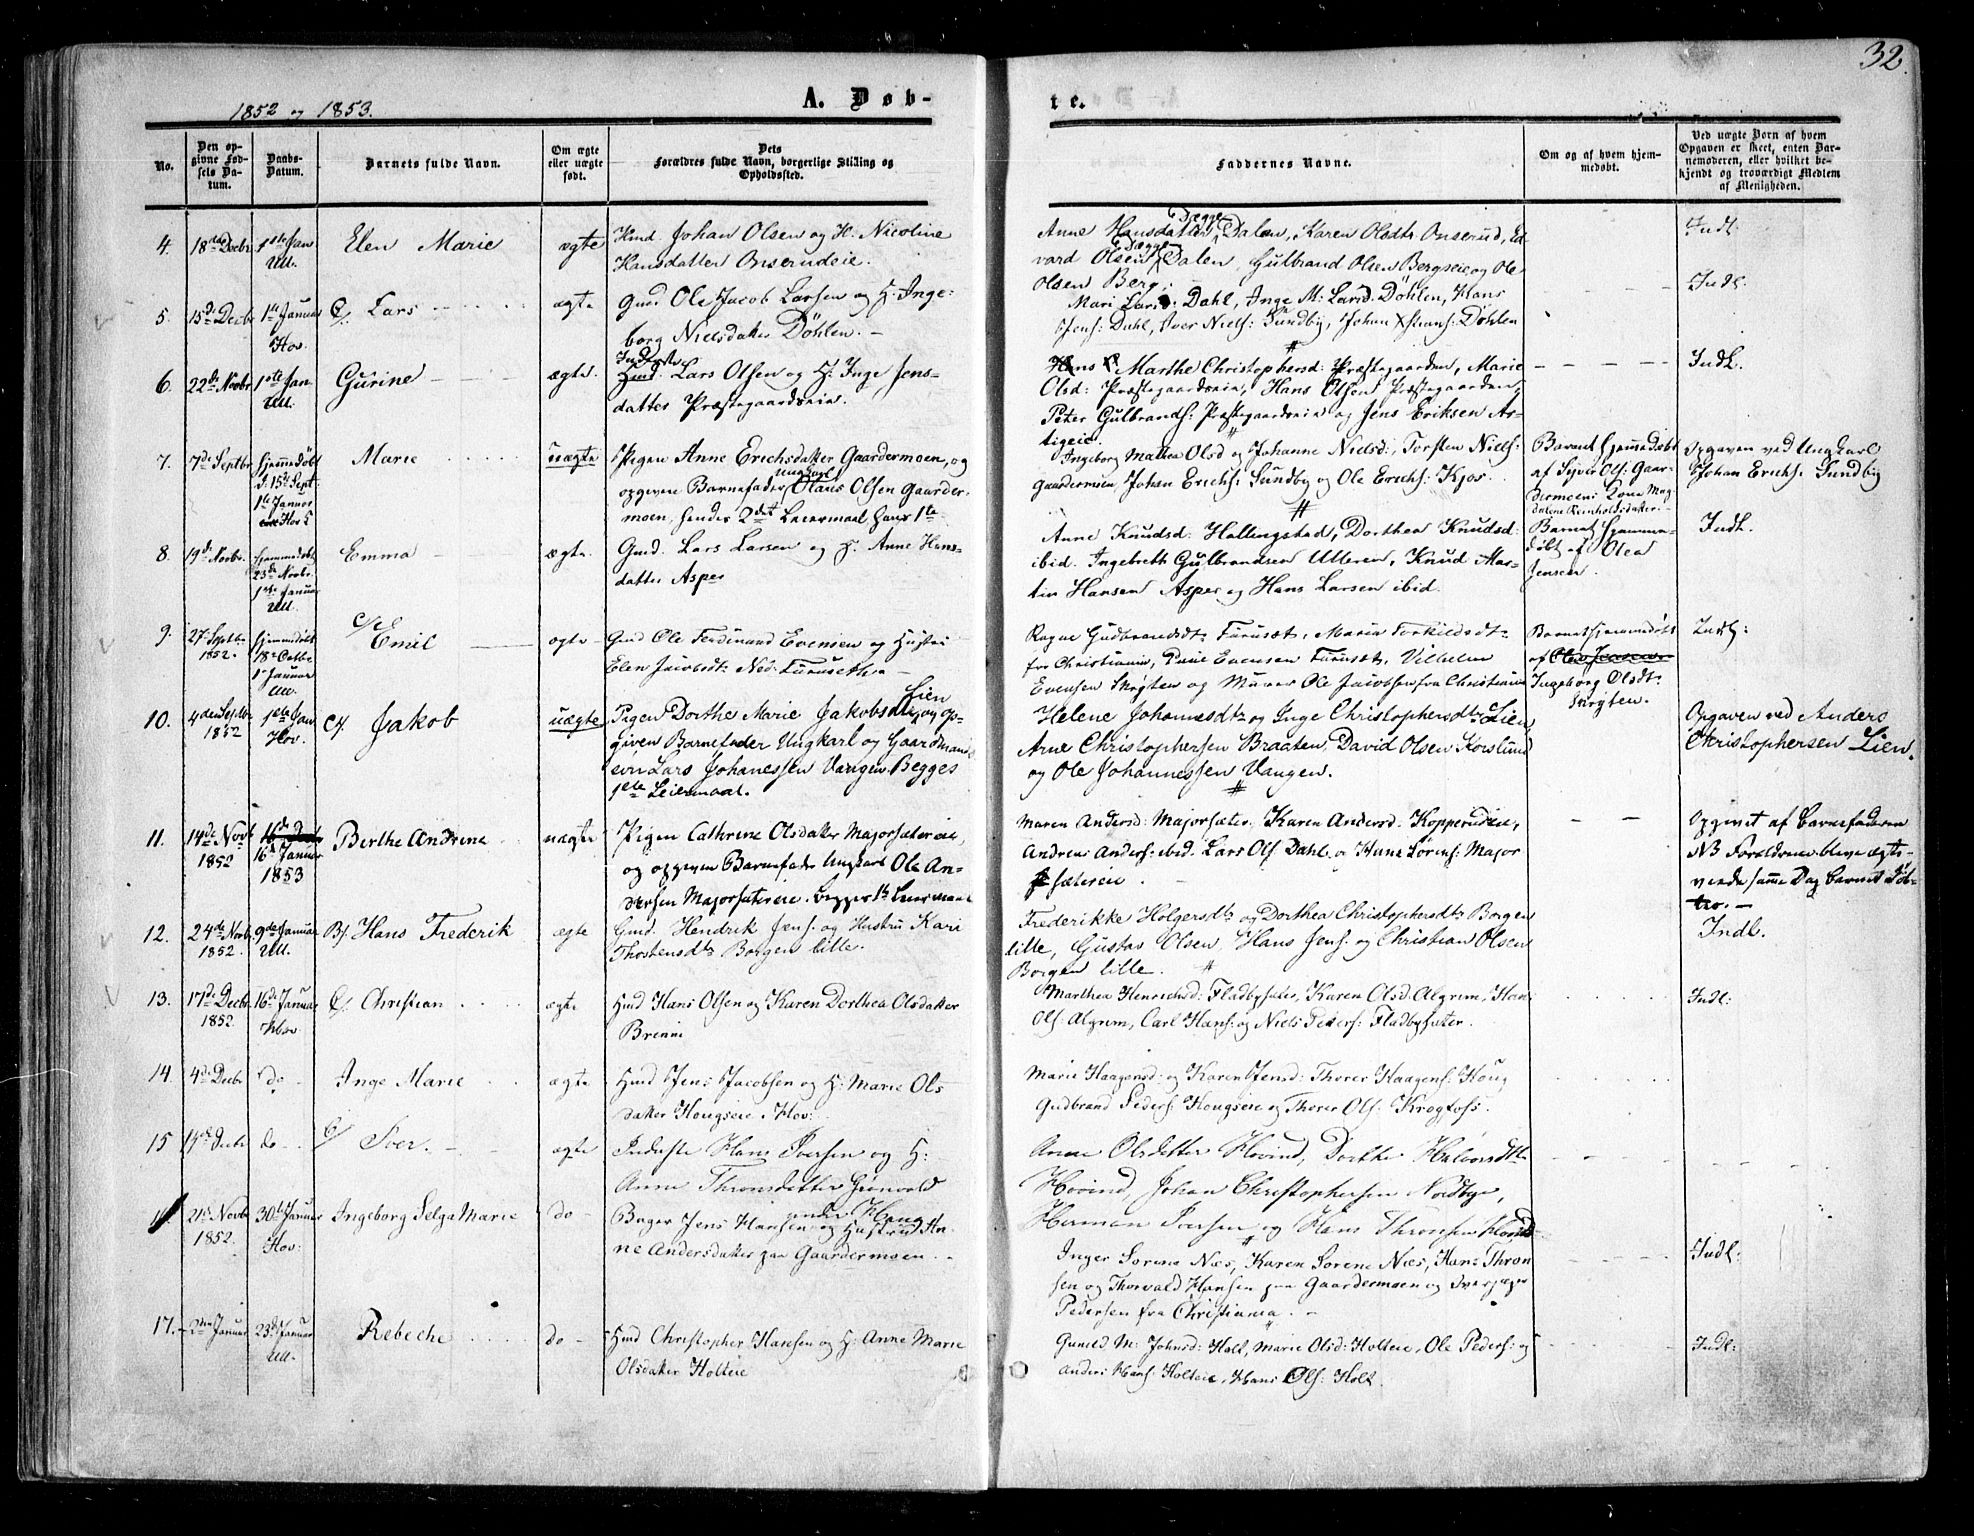 32.
1852 og 1853.
A. Døb-
te.
No.
Den op-
givne Fød-
sels Da-
tum.
Daabs-
Datum.
Barnets fulde Navn.
Om ægte
eller uægte
født.
Dets
Forældres fulde Navn, borgerlige Stilling og
Opholdssted.
Faddernes Navne.
Om og af hvem hjem-
medøbt.
Ved uægte Børn af hvem
Opgaven er skeet, enten Bar-
nemoderen, eller hvilket be-
kjendt og troværdigt Medlem
af Menigheden.
4.
18de Decbr
1ste Jan
Ull.
Elen Marie
ægte
Hmd. Johan Olsen og H. Nicoline
Hansdatter Onserudeie.
Anne Hansdatter Dægge Dalen, Karen Olsdtr Onserud, Ed
vard Olsen Dægge Dalen, Gulbrand Olsen Bergseie og Ole
Olsen Berg.
Indl:
5.
15de Decbr
1ste Januar
Hov.
C/. Lars
ægte
Gmd Ole Jacob Larsen og H. Inge:
borg Nielsdatter Döhlen. -
Mari Larsd: Dahl, Inge M: Larsd. Döhlen, Hans
Jens: Dahl, Iver Niels: Sundby, Johan Xstians: Döhlen
Indl:
6.
22de Novbr
1ste Jan.
Ull.
Gurine
ægte.
Inderste
Hmd. Lars Olsen og H. Inge Jens-
datter Præstegaardseie.
Hans Marthe Christophersd: Præstegaarden, Marie
Olsd: Præstegaardseie, Hans Olsen Præstegaarden,
Peter Gulbrands: Præstegaardseie og Jens Eriksen As-
tigeie.
Indl.
7.
7de Septbr
Hjemmedöbt
d. 15de Sept
1ste Januar
Hov
Marie
uægte
Pigen Anne Erichsdatter Gaardermoen, og
opgiven Barnefader Ungkarl Olaus Olsen Gaarder-
moen, hendes 2det Leiermaal hans 1te
Ingeborg Mathea Olsd og Johanne Nielsd:, Torsten Niels:
Gaardermoen, Johan Erichs: Sundby og Ole Erichs: Kjos.
Barnet hjemmedöbt
af Syver Ols: Gaar-
dermoens Kone Mag-
dalene Reinholdsdatter.
Opgaven ved Ungkarl
Johan Erichs: Sundby
8.
19de Novbr.
hjemmedöbt
23de Novbr.
1ste Januar
Ull.
Emma
ægte
Gmd. Lars Larsen og H. Anne Hans-
datter Asper
Anne Knudsd: Hallingstad, Dorthea Knudsd:
ibid. Ingebreth Gulbrandsen Ulleren, Knud Mar-
tin Hansen Asper og Hans Larsen ibid.
Barnet hjemme-
döbt af Olea
Jensen.
Indl.
9.
27. Septbr
1852.
hjemmedöbt
18de Octbr
1ste Januar
Ull.
C/. Emil
ægte
Gmd Ole Ferdinand Evensen og Hustru
Elen Jacobsdt: Ned: Furuseth. -
Ragne Gudbrandsdt: Furuset, Maria Torkildsdt:
fra Christiania, Paul Evensen Furuset, Vilhelm
Evensen Skrøten og Murer Ole Jacobsen fra Christiania
Barnet hjemmedöbt
af Olea Jensen
Ingeborg Olsdt:
Indl:
10.
4de Septbr
1852
1ste Jan
Hov.
C/. Jakob
uægte
Pigen Dorthe Marie Jakobsdtr Lien og op-
given Barnefader Ungkarl og Gaardmands
Lars Johanessen Vangen. Begges
1ste Leiermaal.
Helene Johannesdtr og Inge Christophersdtr Lien,
Arne Christophersen Braaten, David Olsen Korslund
og Ole Johannessen Vangen.
Opgaven ved Anders
Christophersen Lien.
11.
14de Novb
1852
16de Decbr
16de Januar
1853
Berthe Andrine
uægte
Pigen Cathrine Olsdatter Majorsætereie,
og opgiven Barnefader Ungkarl Ole An-
dersen Majorsætereie. begges 1ste Leiermaal
Maren Andersd: Majorsæter, Karen Andersd: Kopperudeie,
Andreas Anders: ibid. Lars Ols Dahl, og Hans Sörens: Major
sætereie.
Opgivet af Barnefaderen
NB Forældrene bleve ægte-
viede samme Dag barnet döb-
tes. -
12.
24de Novb.
1852.
9de Januar
Ull.
B/. Hans Frederik
ægte
Gmd. Hendrik Jens: og Hustru Kari
Thostensdtr Borgen lille.
Frederikke Holgersdtr og Dorthea Christophersdtr Borgen
lille, Gustav Olsen, Hans Jens: og Christian Olsen
Borgen lille.
Indl.
13.
17de Decbr
1852.
16de Januar
Hov
C/. Christian
ægte
Hmd Hans Olsen og Karen Dorthea Olsdatter
Brenni
Marthea Henrichsd: Fladbysæter, Karen Olsd. Algrim, Hans
Ols: Algrim, Carl Hans: og Niels Peders: Fladbysæter.
Indl:
14.
4de Decbr
do
Inge Marie
ægte
Hmd Jens Jacobsen og H. Marie Ols
datter Hougseie i Hov:
Marie Haagensd: og Karen Jensd: Thorer Haagens: Houg
Gudbrand Peders: Hougseie og Thorer Ols: Krogfoss.
15
14de Decbr
do
C/ Iver.
ægte
Inderste Hans Iversen og H:
Anne Thronsdatter Grönvold
under Houg
Anne Olsdatter Hovind, Dorthe Halvorsdtr
Hovind, Johan Christophersen Nordbye,
Herman Iversen og Hans Thronsen Hovind
16.
21de Novbr
1852.
30te Januar
Hov:
Ingeborg Helga Marie
do
Bager Jens Hansen og Hustru An-
ne Andersdatter paa Gaardermoen.
Inger Sorene Næs, Karen Sorene Næs, Hans Thron
sen og Thorvald Hansen paa Gaardermoen og
Pedersen fra Christiania.
Indl:
17.
2den Januar
23de Januar
Ull.
Rebeche
do
Hmd Christopher Hansen og H: Anne Marie
Olsdatter Holteie
Gunild M: Johnsd: Holt, Marie Olsd: Holteie, Ole Peders: og
Anders Hans: Holteie, Hans Ols: Holt.
Indl: